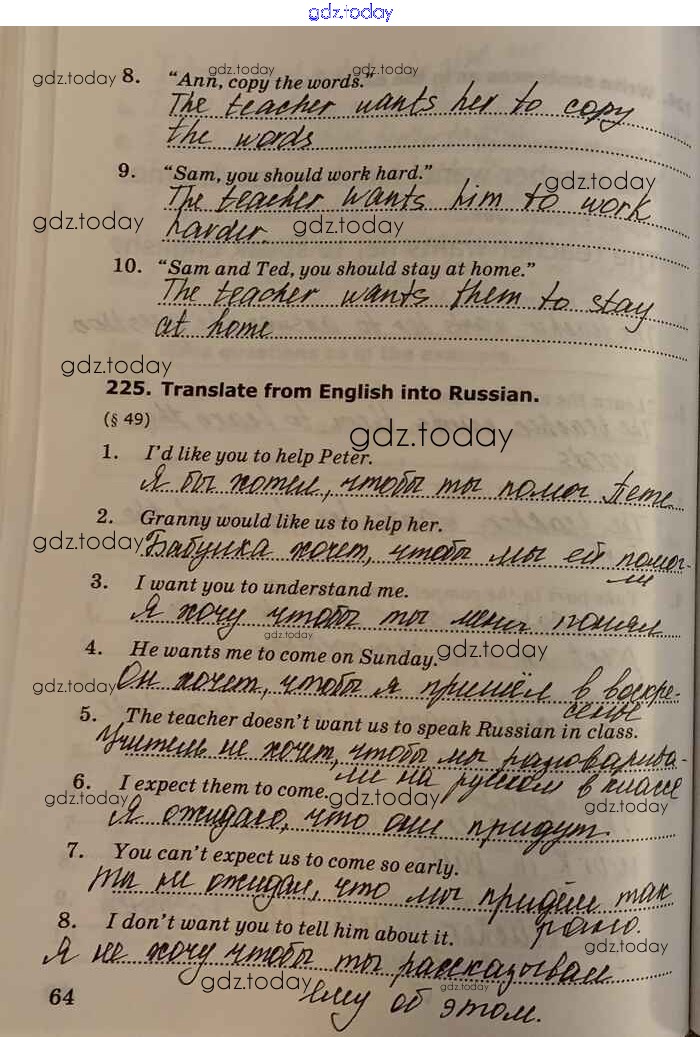 gdz.today
8. “Ann, copy the words.”
The teacher wants her to copy
the words
9. “Sam, you should work hard.”
The teacher wants him to work
harder.
10. “Sam and Ted, you should stay at home.”
The teacher wants them to stay
at home
225. Translate from English into Russian.
(§ 49)
1. I’d like you to help Peter.
Я бы хотел, чтобы ты помог Пете.
2. Granny would like us to help her.
Бабушка хочет, чтобы мы ей помог-
ли
3. I want you to understand me.
Я хочу чтобы ты меня понял
4. He wants me to come on Sunday.
Он хочет, чтобы я пришёл в воскре-
сенье
5. The teacher doesn’t want us to speak Russian in class.
Учитель не хочет, чтобы мы разговарива-
ли на русском в классе
6. I expect them to come.
Я ожидаю, что они придут.
7. You can’t expect us to come so early.
Ты не ожидал, что мы придём так
рано.
8. I don’t want you to tell him about it.
Я не хочу чтобы ты рассказывал
ему об этом.
64